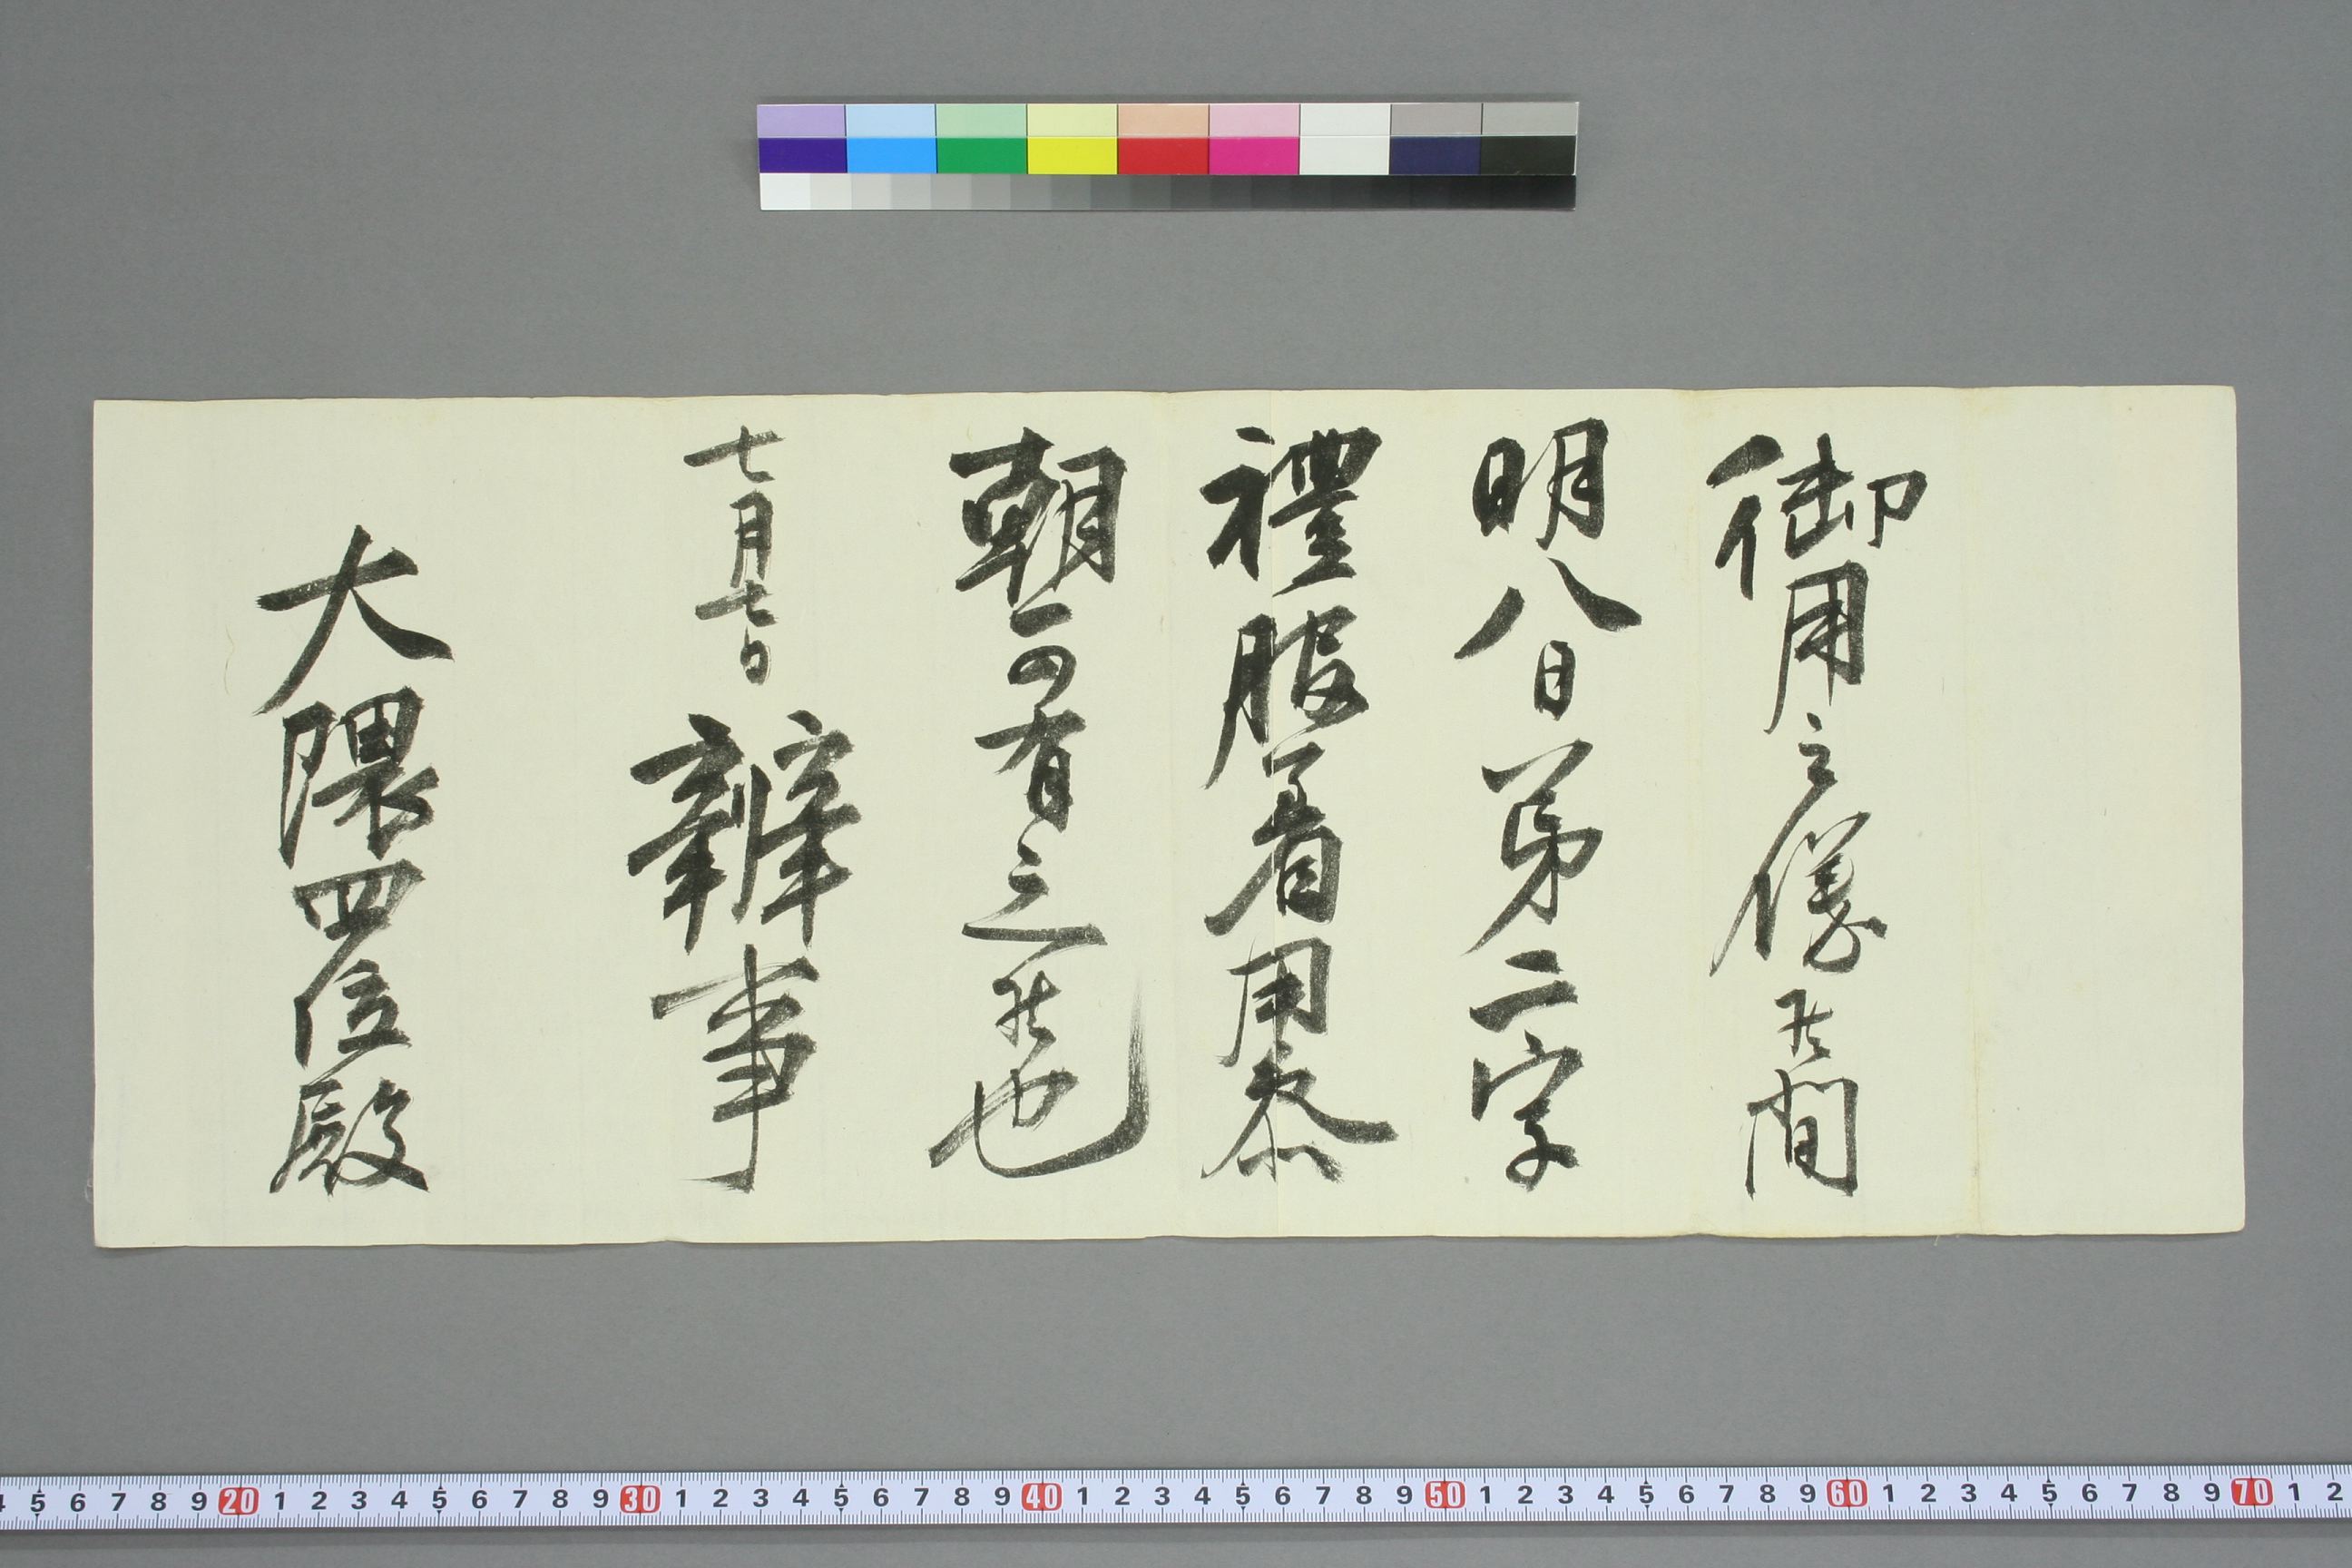 御用之儀候間
明八日第二字
禮服着用参
朝可有之候也
七月七日 辨事
大隈四位殿
4 5 6 7 8 9 20 1 2 3 4 5 6 7 8 9 30 1 2 3 4 5 6 7 8 9 40 1 2 3 4 5 6 7 8 9 50 1 2 3 4 5 6 7 8 9 60 1 2 3 4 5 6 7 8 9 70 1 2